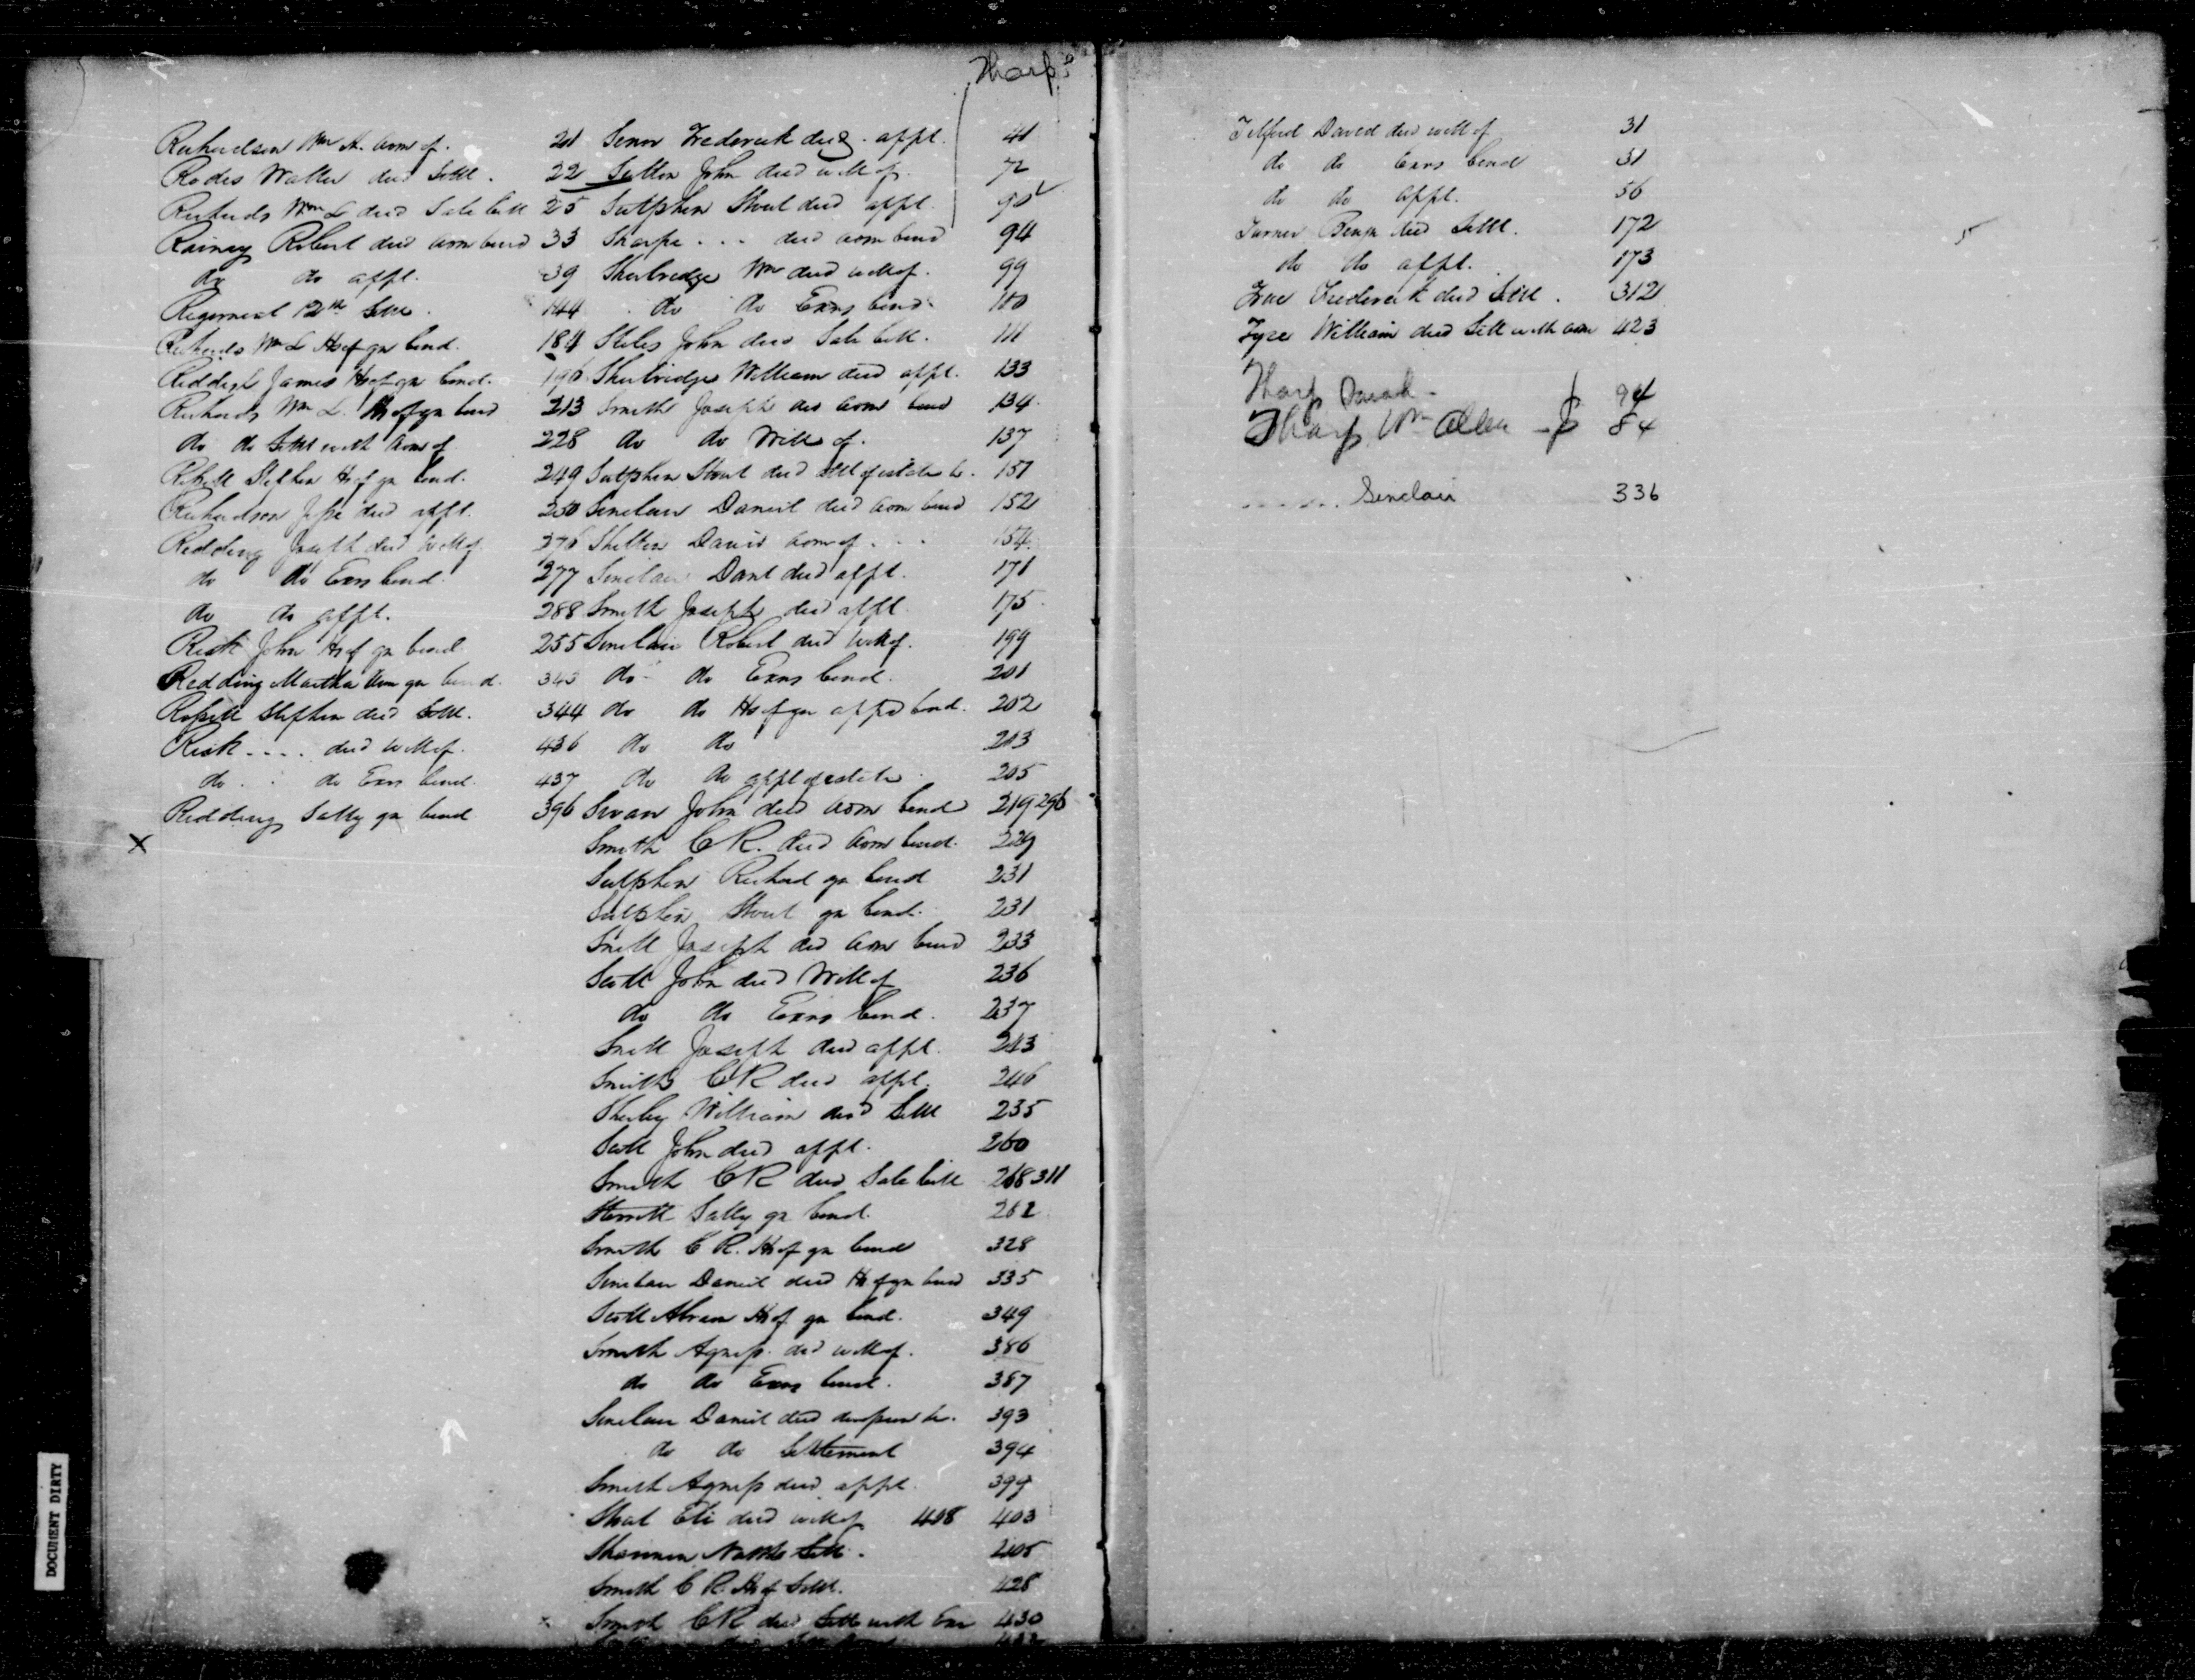 Tharp
Richardson Wm A. Adm of. 21
Rodes Waller decd Settl. 22
Richards Wm L decd Sale bill 25
Rainey Robert decd Adm bond 33
do do appt. 39
Regiment 12th Settl. 144
Richards Wm L Hs of gn bond. 184
Reddish James Hs of gn bond. 196
Richards Wm L. Hs of gn bond 213
do do Settl with Adm of 228
Stephen Hs of gn bond. 249
Richardson Jesse decd appt. 250
Redding Joseph decd will of 276
do do Exrs bond. 277
do do appt. 288
Risk John Hs of gn bond 255
Redding Martha Ann gn bond. 343
Stephen decd Settl. 344
Risk .... decd will of. 436
do do Exrs bond. 437
Redding Sally gn bond 396
X
Frederick decd. appt. 41
Sutton John decd will of. 72
Sutphin Stout decd appt. 90
Sharpe ... decd Adm bond 94
Shubridge Wm decd will of. 99
do do Exrs bond. 100
Stiles John decd Sale bill. 111
Shubridge William decd appt. 133
Smith Joseph decd Adm bond 134
do do Will of. 137
Sutphin Stout decd Settl of estate &c. 151
Sinclair Daniel decd Adm bond 152
Shelton David Adm of 154
Sinclair Danl decd appt. 171
Smith Joseph decd appt 175
Sinclair Robert decd will of. 199
do do Exrs bond. 201
do do Hs of gn appt bond. 202
do do 203
do do appt of estate 205
Swan John decd Adm bond 219 296
Smith C R. decd Adm bond. 229
Sutphin Richard gn bond 231
Sutphin Stout gn bond. 231
Snell Joseph decd Adm bond 233
Scott John decd Will of 236
do do Exrs bond. 237
Snell Joseph decd appt. 243
Smith C R decd appt. 246
Sherley William decd Settl 235
Scott John decd appt. 260
Smith C R decd Sale bill 268 311
Sterrett Sally gn bond. 262
Smith C R. Hs of gn bond 328
Sinclair Daniel decd Hs of gn bond 335
Scott Abram Hs of gn bond. 349
Smith Agness decd will of. 386
do do Exrs bond. 387
Sinclair Daniel decd 393
do do Settlement 394
Smith Agness decd appt. 399
Stout Eli decd will of 408 403
Shannon Settl. 205
Smith C R. Hs of Settl. 428
Smith C R decd Settl with Exr 430
Telford David decd will of 31
do do Exrs bond 31
do do appt. 56
Turner Benja decd Settl. 172
do do appt. 173
Frederick decd Settl. 312
Tyre William decd Settl with Adm 423
Tharp Sarah - 94
Tharp Wm Allen - 84
Sinclair 336
DOCUMENT DIRTY